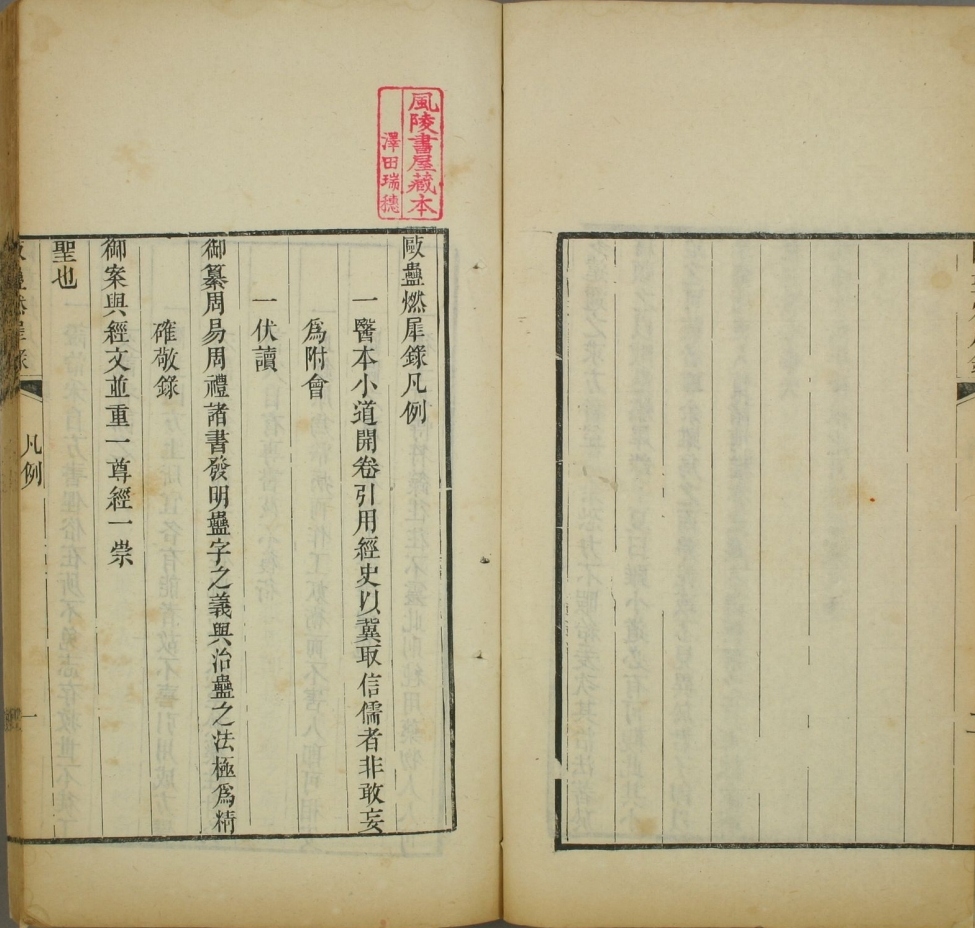 風陵書屋藏本
澤田瑞穗
毆蠱燃犀錄凡例
一醫本小道開卷引用經史以冀取信儒者非敢妄
爲附會
一伏讀
御纂周易周禮諸書發明蠱字之義與治蠱之法極爲精
確敬錄
御案與經文並重一尊經一崇
聖也
凡例
一